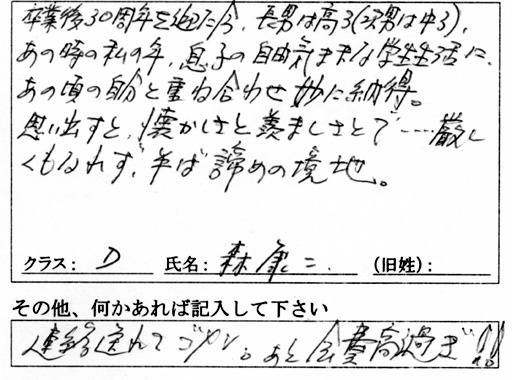 卒業後30周年を迎えた今、長男は高3(次男は中3)、
あの時の私の年、息子の自由気ままな学生生活に、
あの頃の自分と重ね合わせ妙に納得。
思い出すと、懐かしさと羨ましさとで……厳し
くもなれず、半ば諦めの境地。
クラス: D 氏名: 森康二 (旧姓):
その他、何かあれば記入して下さい
連絡遅れてゴメン。あと会費高過ぎ!!